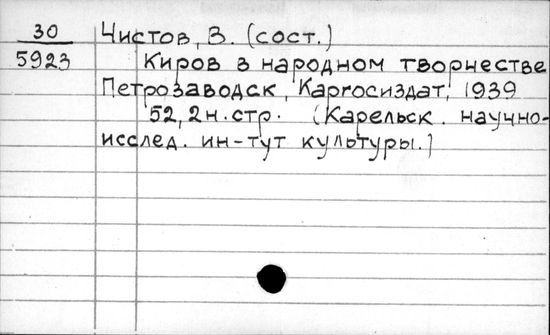 30 Чистов, В. (сост.)
5923 Киров в народном творчестве
Петрозаводск, Каргосиздат, 1939
52, 2 н. стр. (Карельск. научно-
исслед. ин-тут культуры.)